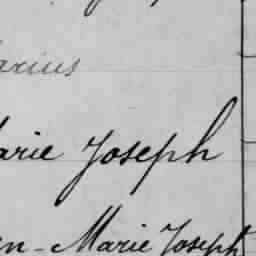 arius
arie Joseph
en-Marie Joseph